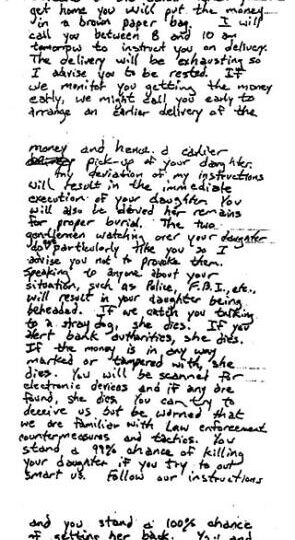 get home you will put the money
in a brown paper bag. I will
call you between 8 and 10 am
tomorrow to instruct you on delivery.
The delivery will be exhausting so
I advise you to be rested. If
we monitor you getting the money
early, we might call you early to
arrange an earlier delivery of the
money and hence. a earlier
pick-up of your daughter.
Any deviation of my instructions
will result in the immediate
execution of your daughter. You
will also be denied her remains
for proper burial. The two
gentlemen watching over your daughter
do not particularly like you so I
advise you not to provoke them.
Speaking to anyone about your
situation, such as Police, F.B.I., etc.,
will result in your daughter being
beheaded. If we catch you talking
to a stray dog, she dies. If you
alert bank authorities, she dies.
If the money is in any way
marked or tampered with, she
dies. You will be scanned for
electronic devices and if any are
found, she dies. You can try to
deceive us but be warned that
we are familiar with Law enforcement
countermeasures and tactics. You
stand a 99% chance of killing
your daughter if you try to out
smart us. Follow our instructions
and you stand a 100% chance
of getting her back. You and